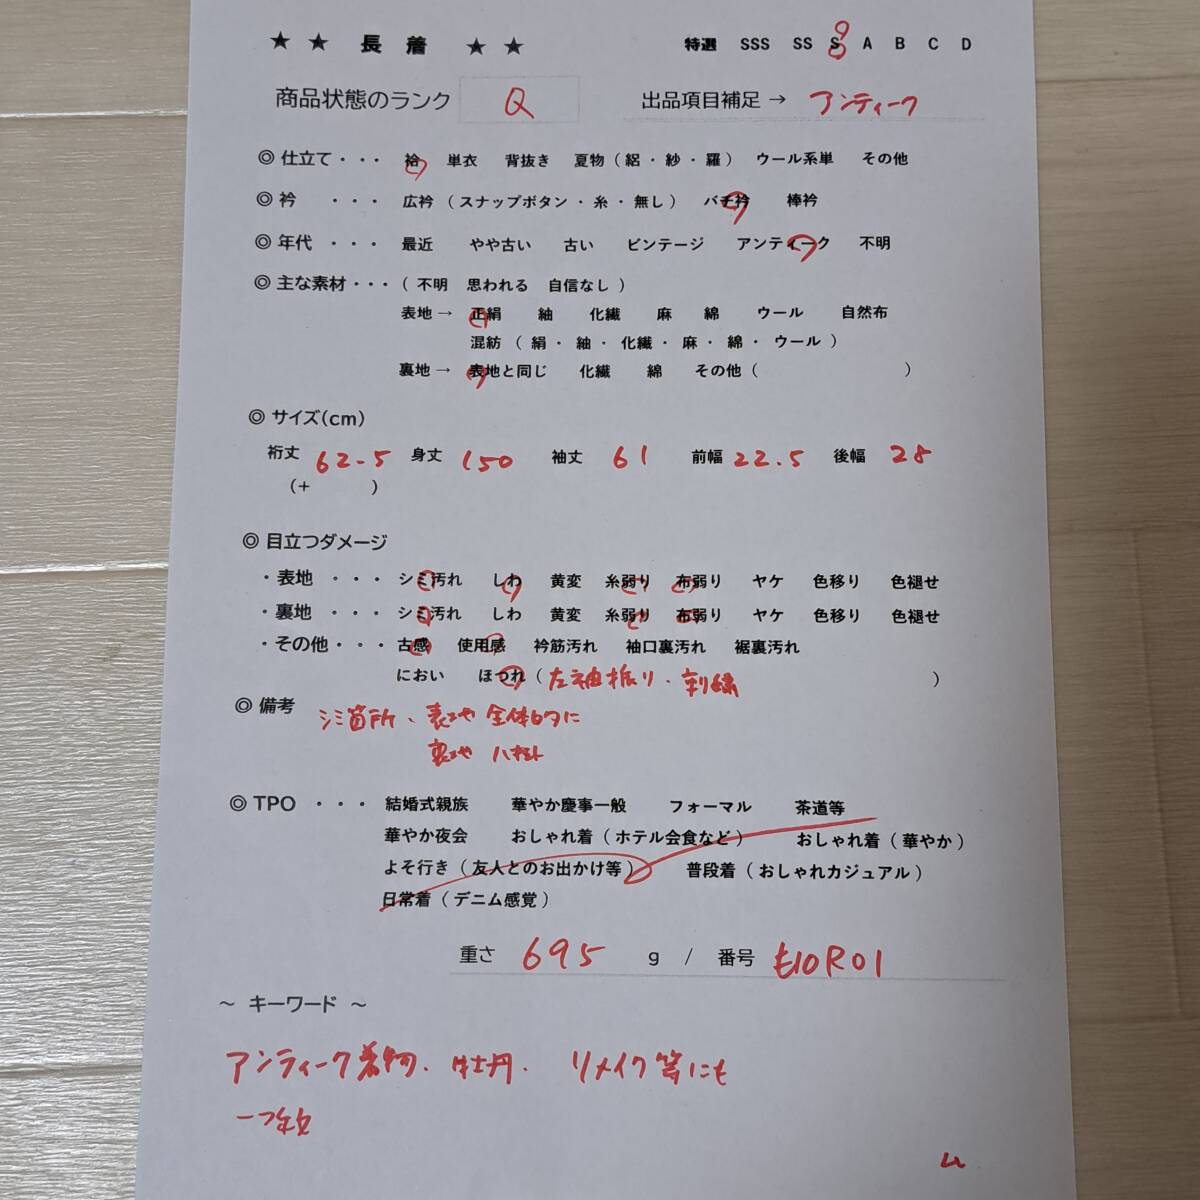 ★ ★ 長 着 ★ ★ 特選 SSS SS S A B C D
商品状態のランク Q 出品項目補足 → アンティーク
◎ 仕立て ・・・ 袷 単衣 背抜き 夏物 ( 絽 ・ 紗 ・ 羅 ) ウール系単 その他
◎ 衿 ・・・ 広衿 ( スナップボタン ・ 糸 ・ 無し ) バチ衿 棒衿
◎ 年代 ・・・ 最近 やや古い 古い ビンテージ アンティーク 不明
◎ 主な素材・・・ ( 不明 思われる 自信なし )
表地 → 正絹 紬 化繊 麻 綿 ウール 自然布
混紡 ( 絹 ・ 紬 ・ 化繊 ・ 麻 ・ 綿 ・ ウール )
裏地 → 表地と同じ 化繊 綿 その他 ( )
◎ サイズ(cm)
裄丈 62-5 身丈 150 袖丈 61 前幅 22.5 後幅 28
(+ )
◎ 目立つダメージ
・表地 ・・・ シミ汚れ しわ 黄変 糸弱り 布弱り ヤケ 色移り 色褪せ
・裏地 ・・・ シミ汚れ しわ 黄変 糸弱り 布弱り ヤケ 色移り 色褪せ
・その他・・・ 古感 使用感 衿筋汚れ 袖口裏汚れ 裾裏汚れ
におい ほつれ ( 左袖振り・刺繍 )
◎ 備考 シミ箇所、表地 全体的に
裏地 八掛
◎ TPO ・・・ 結婚式親族 華やか慶事一般 フォーマル 茶道等
華やか夜会 おしゃれ着 ( ホテル会食など ) おしゃれ着 ( 華やか )
よそ行き ( 友人とのお出かけ等 ) 普段着 ( おしゃれカジュアル )
日常着 ( デニム感覚 )
重さ 695 g / 番号 も10R01
～ キーワード ～
アンティーク着物、牡丹、 リメイク等にも
一つ紋
ム